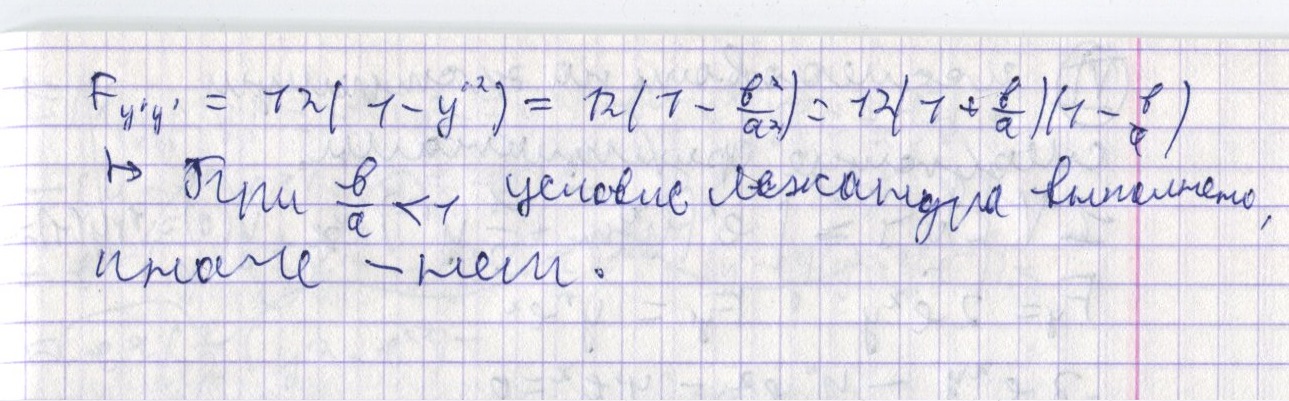 F_{y'y'} = 12(1 - y'^2) = 12(1 - \frac{b^2}{a^2}) = 12(1 + \frac{b}{a})(1 - \frac{b}{a})
↦ При \frac{b}{a} < 1 условие Лежандра выполнено,
иначе - нет.